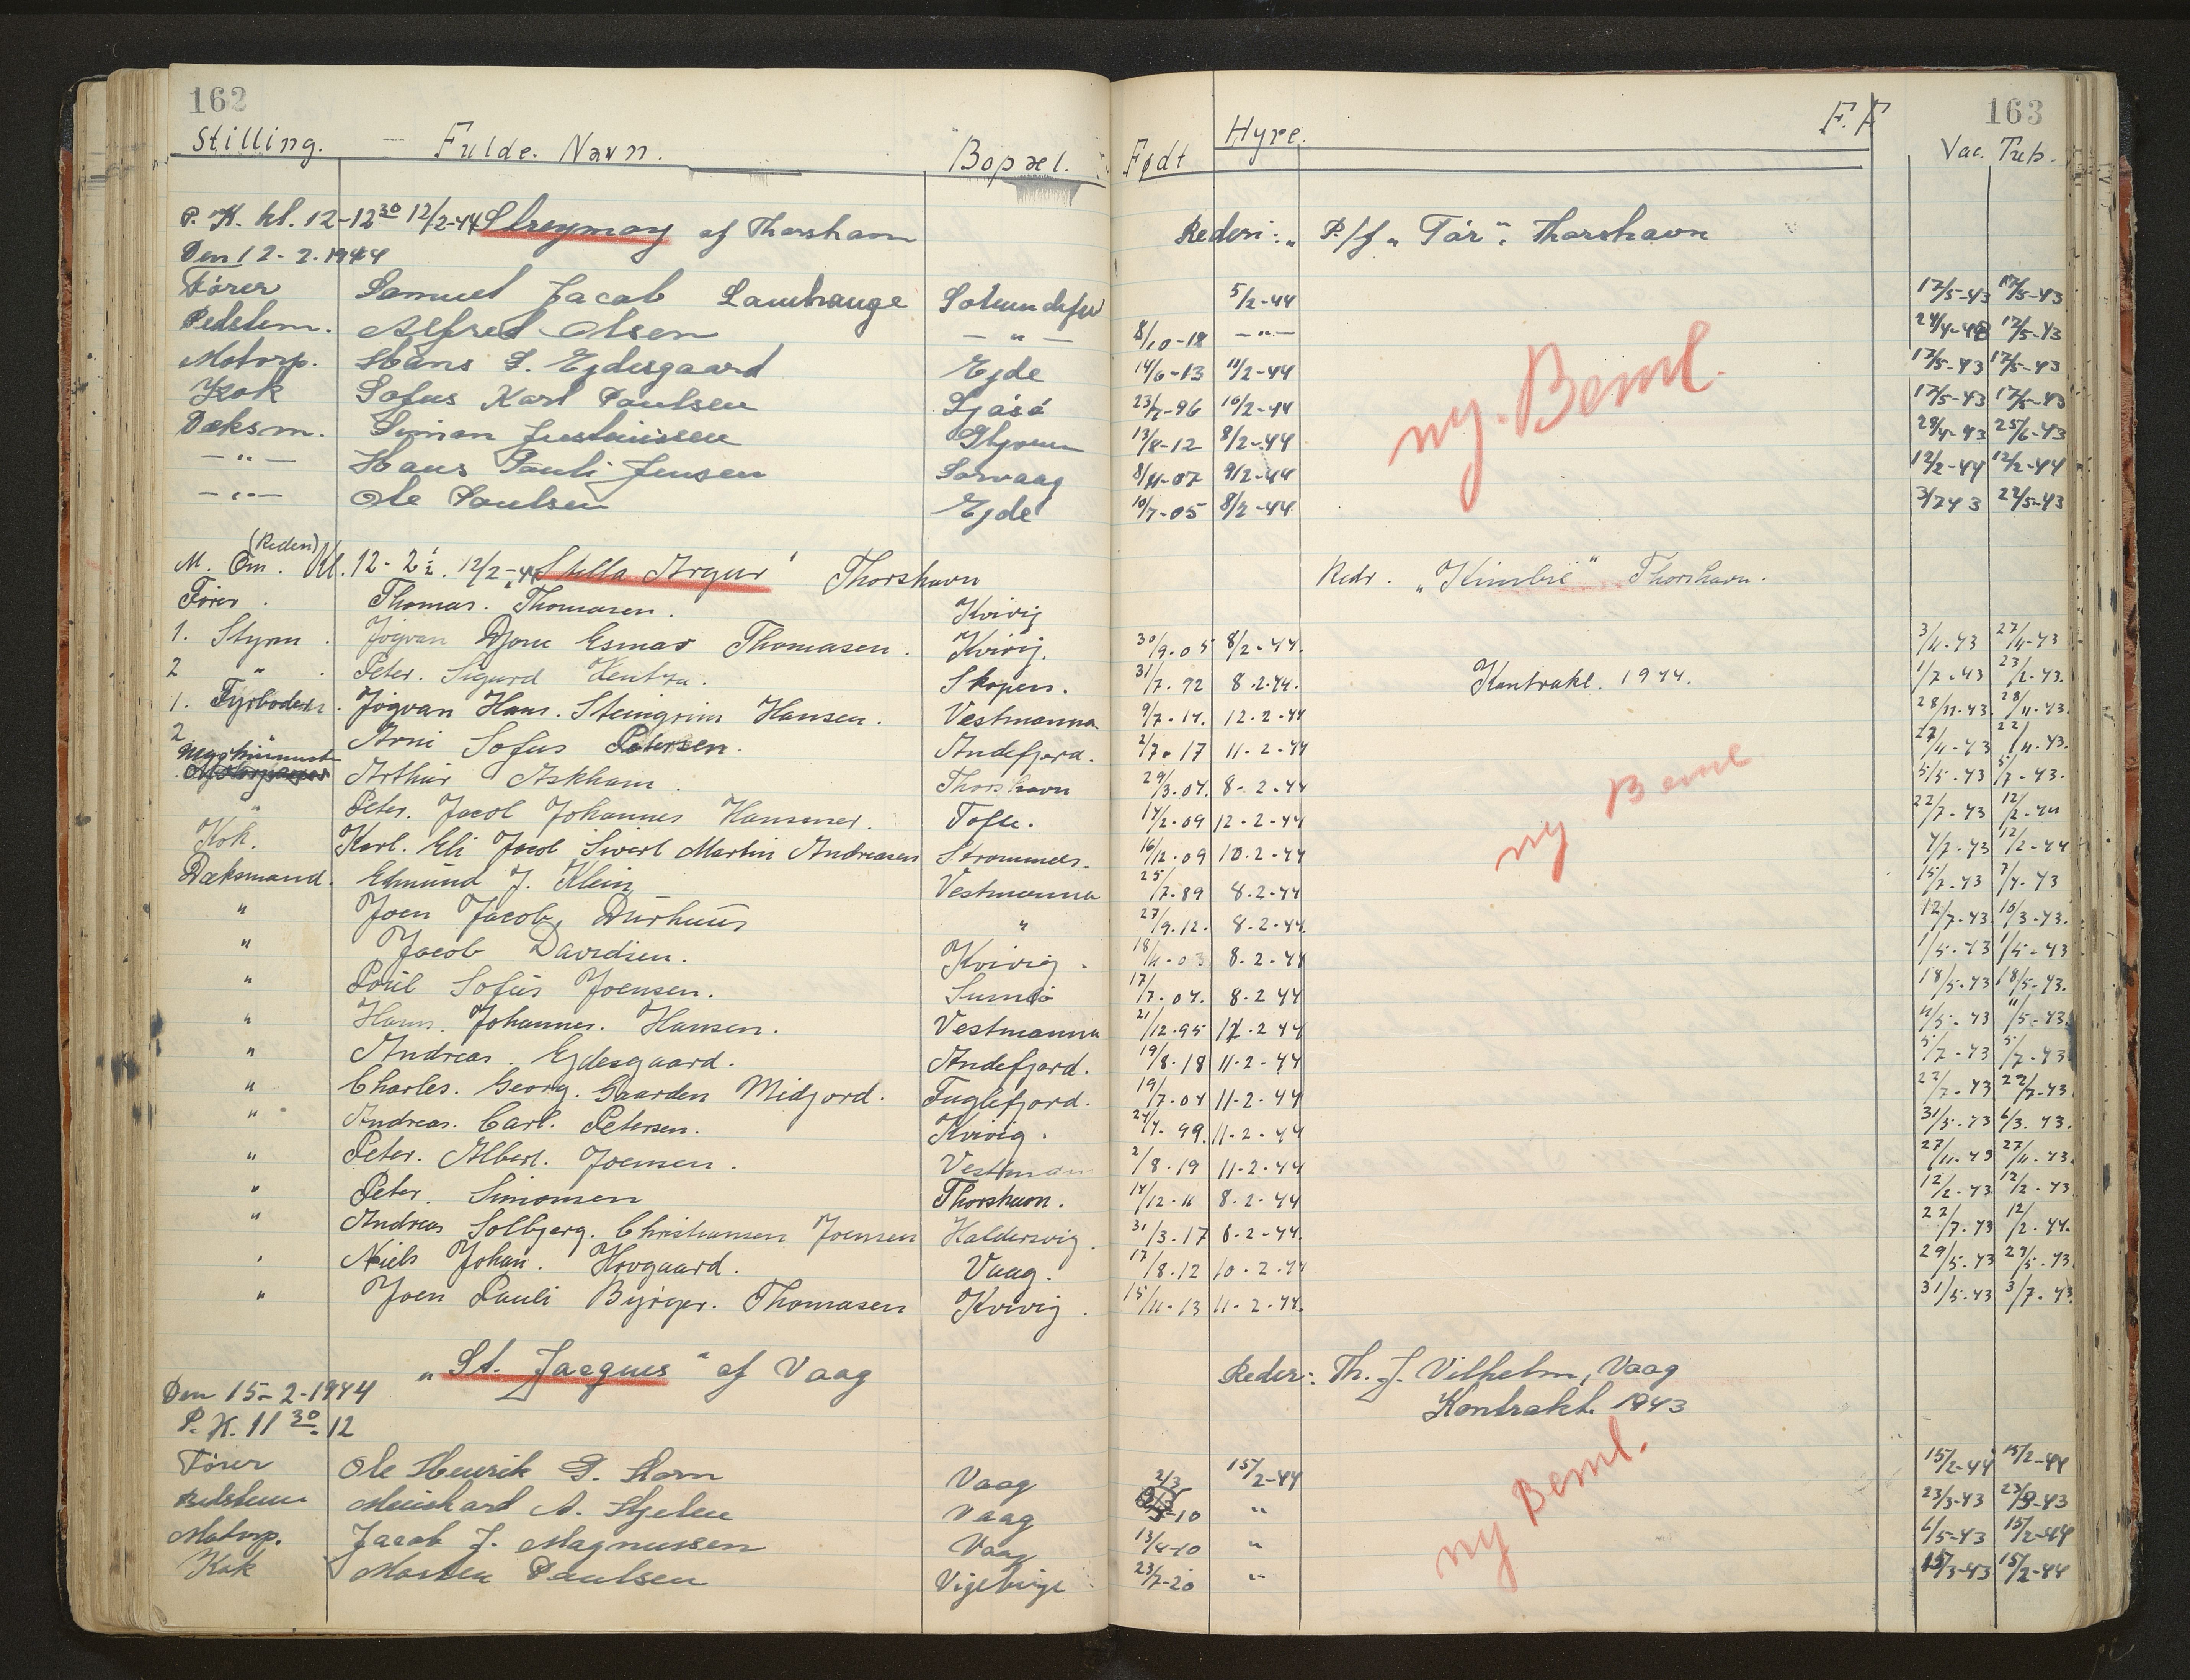 162
163
Stilling. Fulde. Navn. Bopæl. Født Hyre. F.F Vac. Tub.
P. K. kl. 12-12 30 12/2-44 Streymoy af Thorshavn Rederi: P/f „Tór". Thorshavn
Den 12-2.1944
Fører Samuel Jacob Lambhauge 5/2-44 12/5-43 12/5-43
Bedstem. Alfred Olsen — " — 8/10-18 — " — 12/5-43
Motorp. Hans D. Ejdesgaard Ejde 14/6-13 11/2-44 12/5-43 12/5-43
Kok Sofus Karl Paulsen 23/7-96 10/2-44 12/5-43 12/5-43
Dæksm. Simon Justinussen 13/8-12 8/2-44 29/4-43 25/6-43
— " — Hans Pauli Jensen Sørvaag 8/11-07 9/2-44 12/2-44 12/2-44
— " — Ole Poulsen Ejde 10/7-05 8/2-44 22/5-43
ny. Beml.
(Reden)
M. Om. Kl. 12-2½. 12/2-44 „Stella Argus" Thorshavn Redr. „Kimbil" Thorshavn.
Fører. Thomas. Thomasen. Kvivig
1. Styrm. Jógvan Djoni Esmar Thomasen. Kvivig. 30/9.05 8/2-44. 3/11-43 27/4-43
2 " . Peter. Sigurd Kentza. Skopen. 31/7.92 8.2.44. Kontrakt. 1944. 1/7.43 23/2.43.
1. Fyrbøder. Jógvan Hans. Steingrim Hansen. Vestmanna 9/7-14. 12.2-44 28/11-43. 28/11-43.
2 " Arni Sofus Petersen. Andefjord. 2/7.17 11-2-44 27/4-43 22/4-43.
Arthur Askham. Thorshavn 29/3.04. 8-2-44 5/5.43 5/7-43.
" Peter. Jacob Johannes Hammer. Tofte. 14/2-09 12-2-44 22/7-43 12/2-44
Kok. Karl. Eli Jacob Sivert Martin Andreasen Strømnes. 16/12.09 10.2-44 12/2-44
Dæksmand. Edmund J. Klein Vestmanna 25/7.89 8.2-44 15/7.43 7/4-43
" Joen Jacob, Durhuus " 27/9.12. 8.2-44. 12/7-43. 10/3-43.
" Jacob Davidsen. Kvivig. 18/11-03 8.2-44 1/5-43 1/5-43
" Poul Sofus Joensen. Sumbø 17/7.04. 8.2 44 18/5-43 18/5-43.
" Hans. Johannes. Hansen. Vestmanna 21/12.95 12.2 44 11/5-43 11/5-43
" Andreas. Ejdesgaard. Andefjord. 19/8.18 11-2-44 5/7-43 5/7-43
" Charles. Georg. Gaarden Midjord. Fuglefjord. 19/7.04 11-2-44 22/7-43 22/7-43
" Andreas. Carl. Petersen. Kvivig. 24/4-99. 11-2-44 31/5-43 6/3.43.
" Peter. Albert. Joensen. Vestman 2/8.19 11-2-44 27/11-43 27/11-43.
" Peter. Simonsen Thorshavn. 14/12-11 8.2-44 12/2-43 12/2-43
" Andreas Solbjerg. Christiansen Joensen Haldersvig. 31/3.17 8-2-44. 22/7-43 12/2-44.
" Niels Johan. Hovgaard. Vaag. 17/8.12 10.2-44 29/5-43 29/5-43
" Joen Pauli Byrger. Thomasen Kvivig. 15/11-13 11-2-44. 31/5-43 3/7-43.
ny Beml
„St. Jacques" af Vaag Reder: Th. J. Vilhelm, Vaag
Den 15-2-1944 Kontrakt 1943
P. K. 11 30-12
Fører Ole Henrik D. Vaag 2/3 15/2-44 15/2-44 15/2-44
Bedstem Meinhard A. Vaag -10 " 23/3-43 23/9-43
Motorp. Jacob J. Magnussen Vaag 13/4-10 " 6/5-43 15/2-44
Kok Morten Poulsen 23/7-20 " 15/3-43 15/2-44
ny Beml.